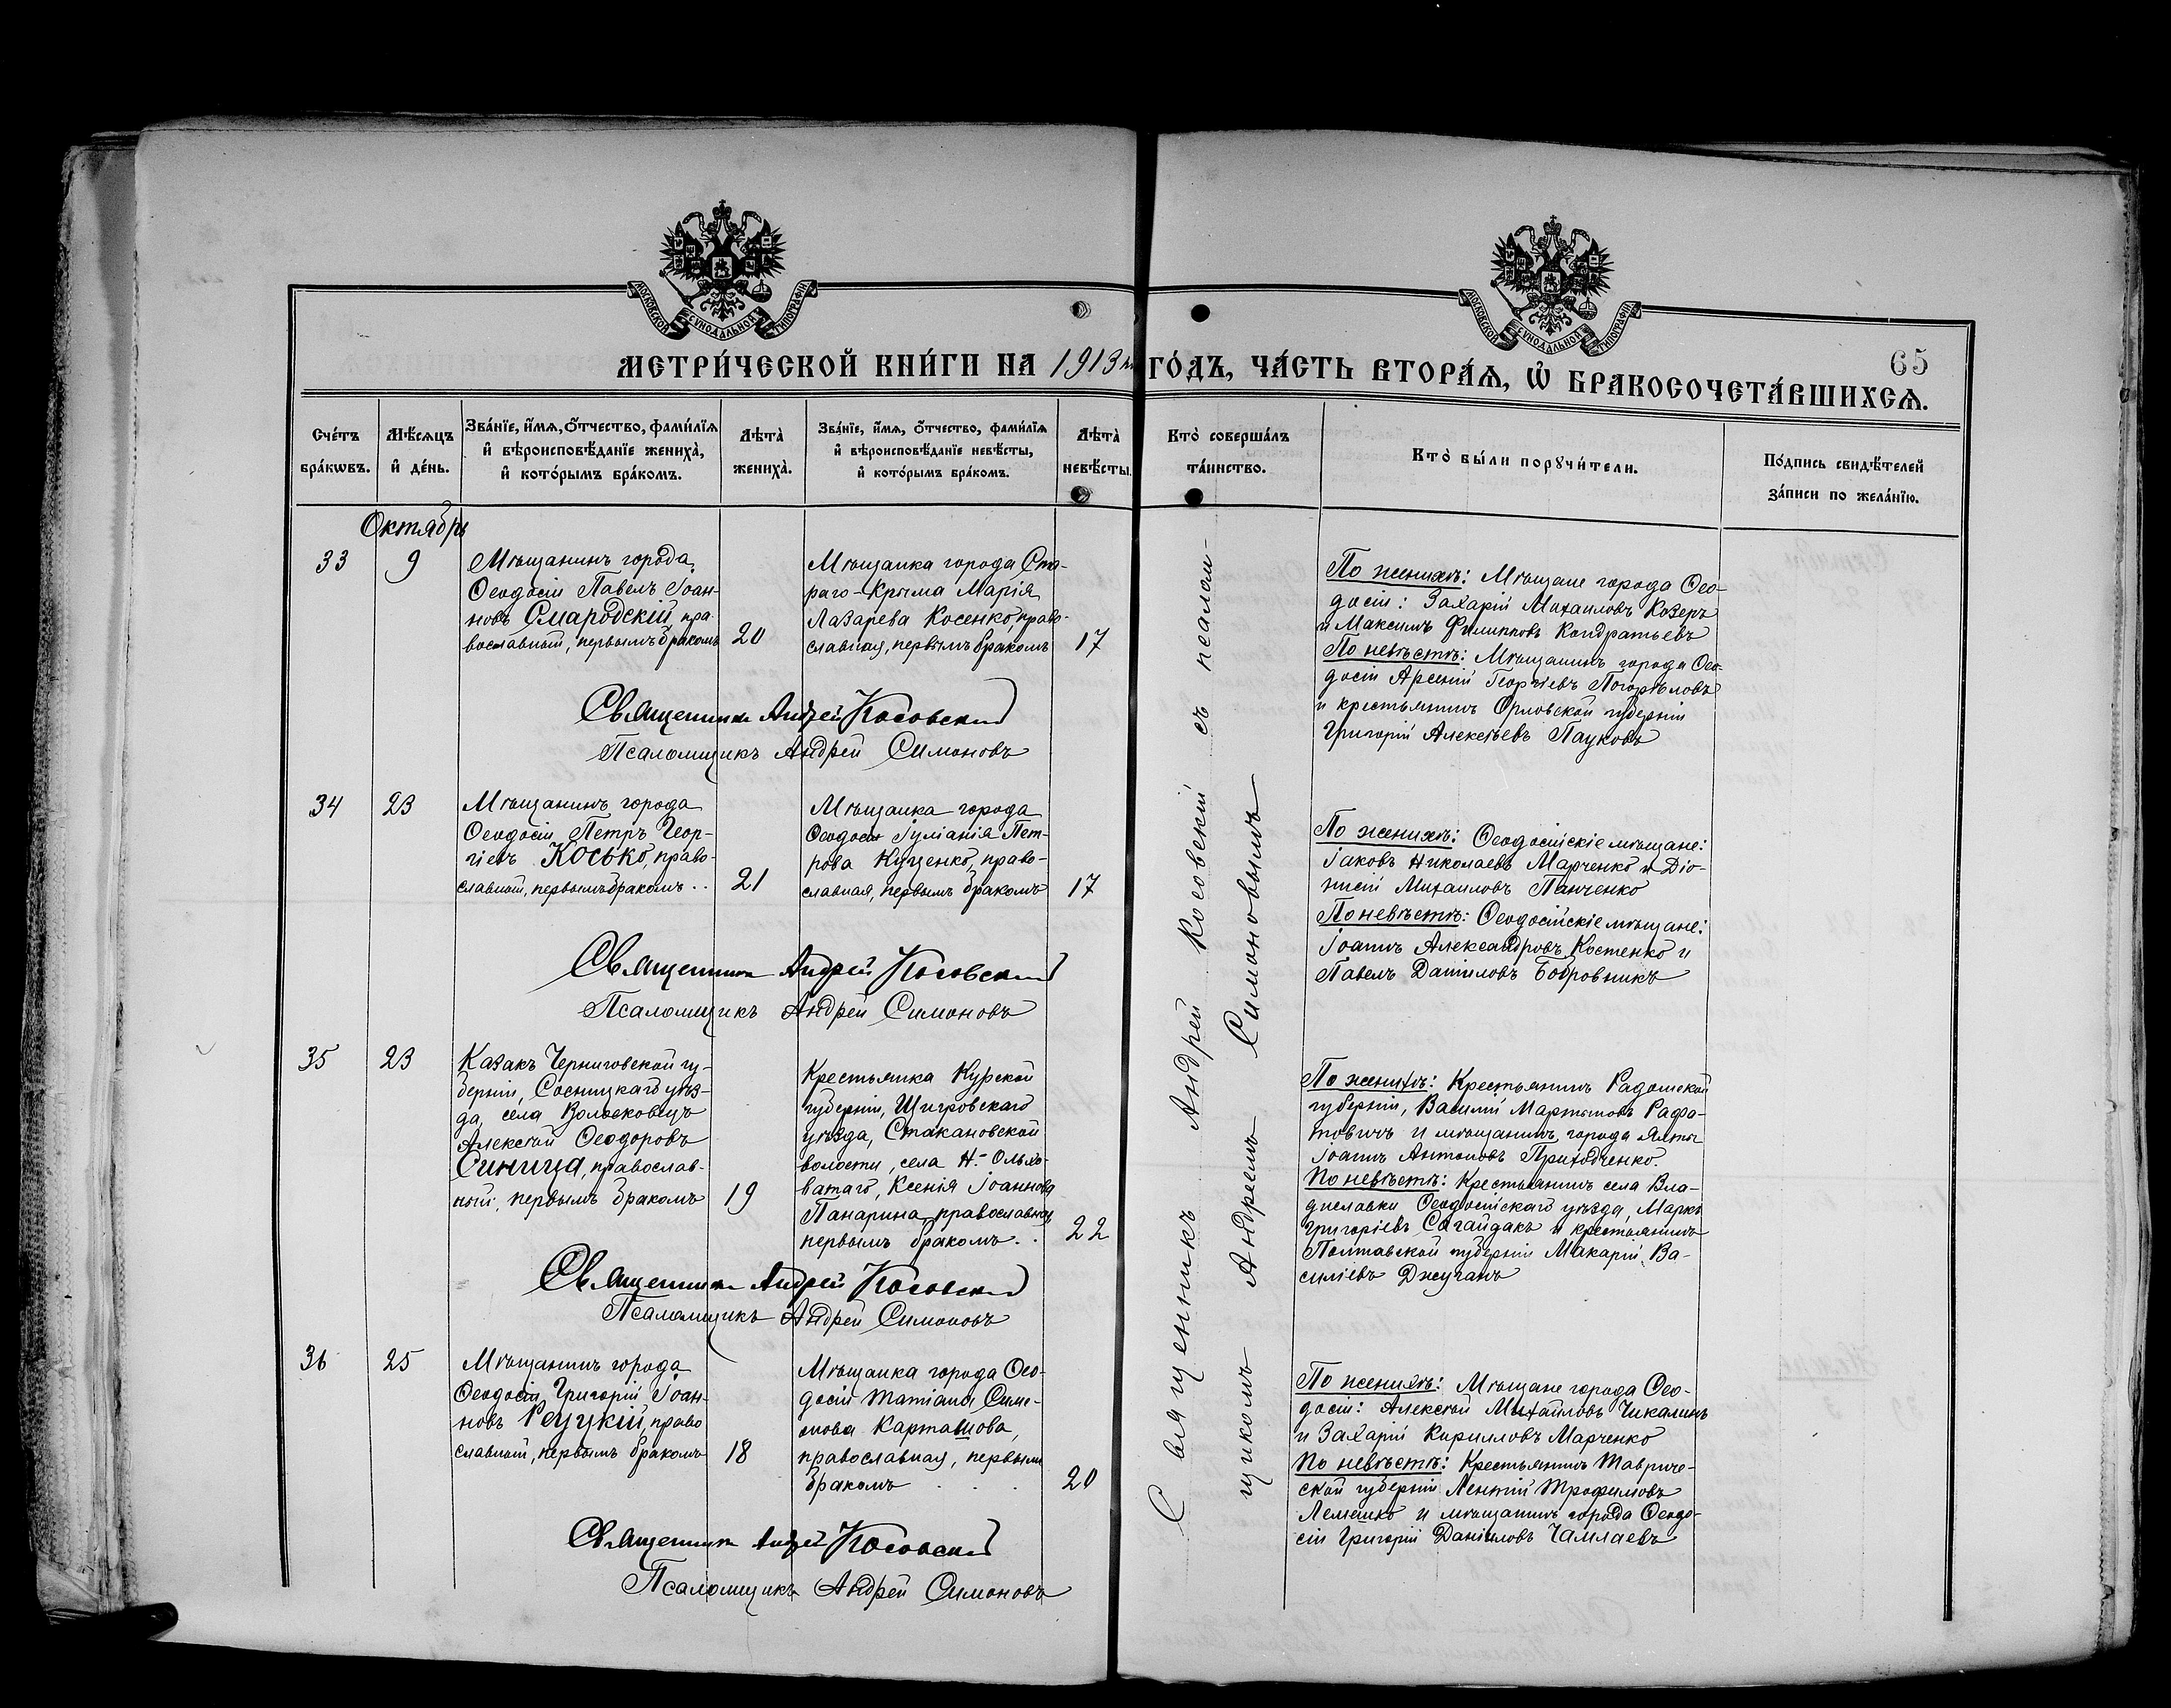 МОСКОВСКОЙ СѴНОДАЛЬНОЙ ТИПОГРАФІИ
МОСКОВСКОЙ СѴНОДАЛЬНОЙ ТИПОГРАФІИ
65
МЕТРИ́ЧЕСКОЙ КНИ́ГИ НА 1913й ГО́ДЪ, ЧА́СТЬ ВТОРА́Ѧ, Ѡ҆ БРАКОСОЧЕТА́ВШИХСѦ.
Сче́тъ
бра́кѡвъ.
Мѣ́сѧцъ
и҆ де́нь.
Зва́нїе, и҆́мѧ, ѻ҆́тчество, фами́лїѧ
и҆ вѣроисповѣ́данїе жениха̀,
и҆ кото́рымъ бра́комъ.
Лѣта̀
жениха̀.
Зва́нїе, и҆́мѧ, ѻ҆́тчество, фами́лїѧ
и҆ вѣроисповѣ́данїе невѣ́сты,
и҆ кото́рымъ бра́комъ.
Лѣта̀
невѣ́сты.
Кто̀ соверша́лъ
та́инство.
Кто̀ бы́ли порꙋчи́тели.
По́дпись свидѣ́телей
за́писи по жела́нїю.
Октябрь
33
9
Мѣщанинъ города
Ѳеодосіи Павелъ Іоан-
новъ Смародскій, пра
вославный, первымъ бракомъ
20
Мѣщанка города Ста-
раго-Крыма Марія
Лазарева Косенко, право-
славная, первымъ бракомъ
17
По женихѣ: Мѣщане города Ѳео-
досіи: Захарій Михаиловъ Козеръ
и Максимъ Филипповъ Кондратьевъ
По невѣстѣ: Мѣщанинъ города Ѳео-
досіи Арсеній Георгіевъ Погорѣловъ
и крестьянинъ Орловской губерніи
Григорій Алексѣевъ Пауковъ
Священникъ Андрей Косовскій
Псаломщикъ Андрей Симоновъ
34
23
Мѣщанинъ города
Ѳеодосіи, Петръ Геор-
гіевъ Косько, право-
славный, первымъ бракомъ..
21
Мѣщанка города
Ѳеодосіи Іуліанія Пет-
рова Куценко, право-
славная, первымъ бракомъ
17
По женихѣ: Ѳеодосійскіе мѣщане:
Іаковъ Николаевъ Марченко и Діо-
нисій Михаиловъ Панченко
По невѣстѣ: Ѳеодосійскіе мѣщане:
Іоаннъ Александровъ Костенко и
Павелъ Даниловъ Бобровникъ
Священникъ Андрей Косовскій
Псаломщикъ Андрей Симоновъ
35
23
Казакъ Черниговской гу-
берніи, Сосницкаго уѣз-
да, села Волосковецъ
Алексѣй Ѳеодоровъ
Синица, православ-
ный, первымъ бракомъ
19
Крестьянка Курской
губерніи, Щигровскаго
уѣзда, Стакановской
волости, села Н.-Ольхо-
ватаго, Ксенія Іоаннова
Панарина, православная
первымъ бракомъ..
22
По женихѣ: Крестьянинъ Радомской
губерніи, Василій Мартыновъ Рафа-
товичъ и мѣщанинъ города Ялты
Іоаннъ Антоновъ Приходченко.
По невѣстѣ: Крестьянинъ села Вла-
диславки Ѳеодосійскаго уѣзда, Маркъ
Григоріевъ Сагайдакъ и крестьянинъ
Полтавской губерніи Макарій Ва-
силіевъ Джуганъ
Священникъ Андрей Косовскій
Псаломщикъ Андрей Симоновъ
36
25
Мѣщанинъ города
Ѳеодосіи, Григорій Іоан-
новъ Реуцкій, право
славный, первымъ бракомъ
18
Мѣщанка города Ѳео-
досіи Татіана Симе-
онова Карташова,
православная, первымъ
бракомъ . . .
20
По женихѣ: Мѣщане города Ѳео-
досіи: Алексѣй Михаиловъ Чикалинъ
и Захарій Кирилловъ Марченко
По невѣстѣ: Крестьянинъ Тавриче-
ской губерніи Леонтій Трофимовъ
Лемешко и мѣщанинъ города Ѳеодо-
сіи Григорій Даніиловъ Чамлаевъ
Священникъ Андрей Косовскій
Псаломщикъ Андрей Симоновъ
Священникъ Андрей Косовскій съ псалом-
щикомъ Андреемъ Симоновымъ